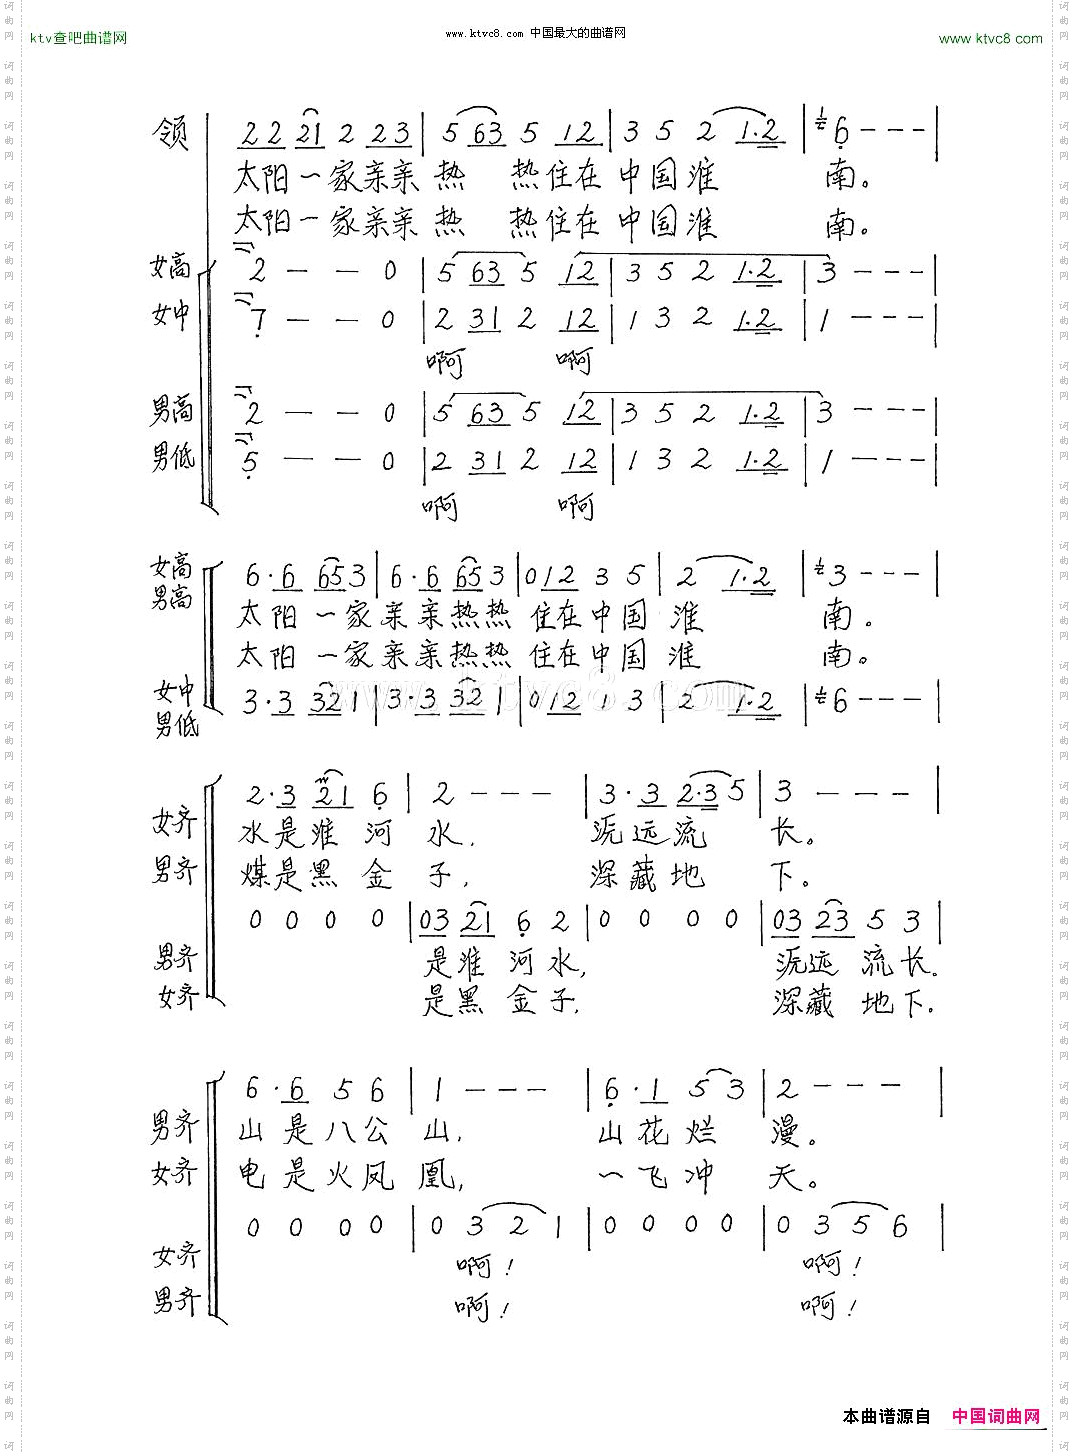 ktv查吧曲谱网
www.ktvc8.com 中国最大的曲谱网
www ktvc8 com
领 2 2 2 1 2 2 3 | 5 6 3 5 1 2 | 3 5 2 1·2 | 6 - - - |
太阳一家亲亲热 热住在中国淮 南。
太阳一家亲亲热 热住在中国淮 南。
女高 2 - - 0 | 5 6 3 5 1 2 | 3 5 2 1·2 | 3 - - - |
女中 7 - - 0 | 2 3 1 2 1 2 | 1 3 2 1·2 | 1 - - - |
啊 啊
男高 2 - - 0 | 5 6 3 5 1 2 | 3 5 2 1·2 | 3 - - - |
男低 5 - - 0 | 2 3 1 2 1 2 | 1 3 2 1·2 | 1 - - - |
啊 啊
女高
男高 6·6 6 5 3 | 6·6 6 5 3 | 0 1 2 3 5 | 2 1·2 | 3 - - - |
太阳一家亲亲热热 住在中国 淮 南。
太阳一家亲亲热热 住在中国 淮 南。
www.ktvc8.com
女中
男低 3·3 3 2 1 | 3·3 3 2 1 | 0 1 2 1 3 | 2 1·2 | 6 - - - |
2·3 2 1 6 | 2 - - - | 3·3 2·3 5 | 3 - - - |
女齐 水是淮 河 水, 沅远流 长。
男齐 煤是黑 金 子, 深藏地 下。
0 0 0 0 | 0 3 2 1 6 2 | 0 0 0 0 | 0 3 2 3 5 3 |
男齐 是淮 河水, 沅远 流长.
女齐 是黑 金子, 深藏 地下.
6·6 5 6 | 1 - - - | 6·1 5 3 | 2 - - - |
男齐 山是八公 山, 山花烂 漫。
女齐 电是火凤 凰, 一飞冲 天。
0 0 0 0 | 0 3 2 1 | 0 0 0 0 | 0 3 5 6 |
女齐 啊! 啊!
男齐 啊! 啊!
本曲谱源自 中国词曲网